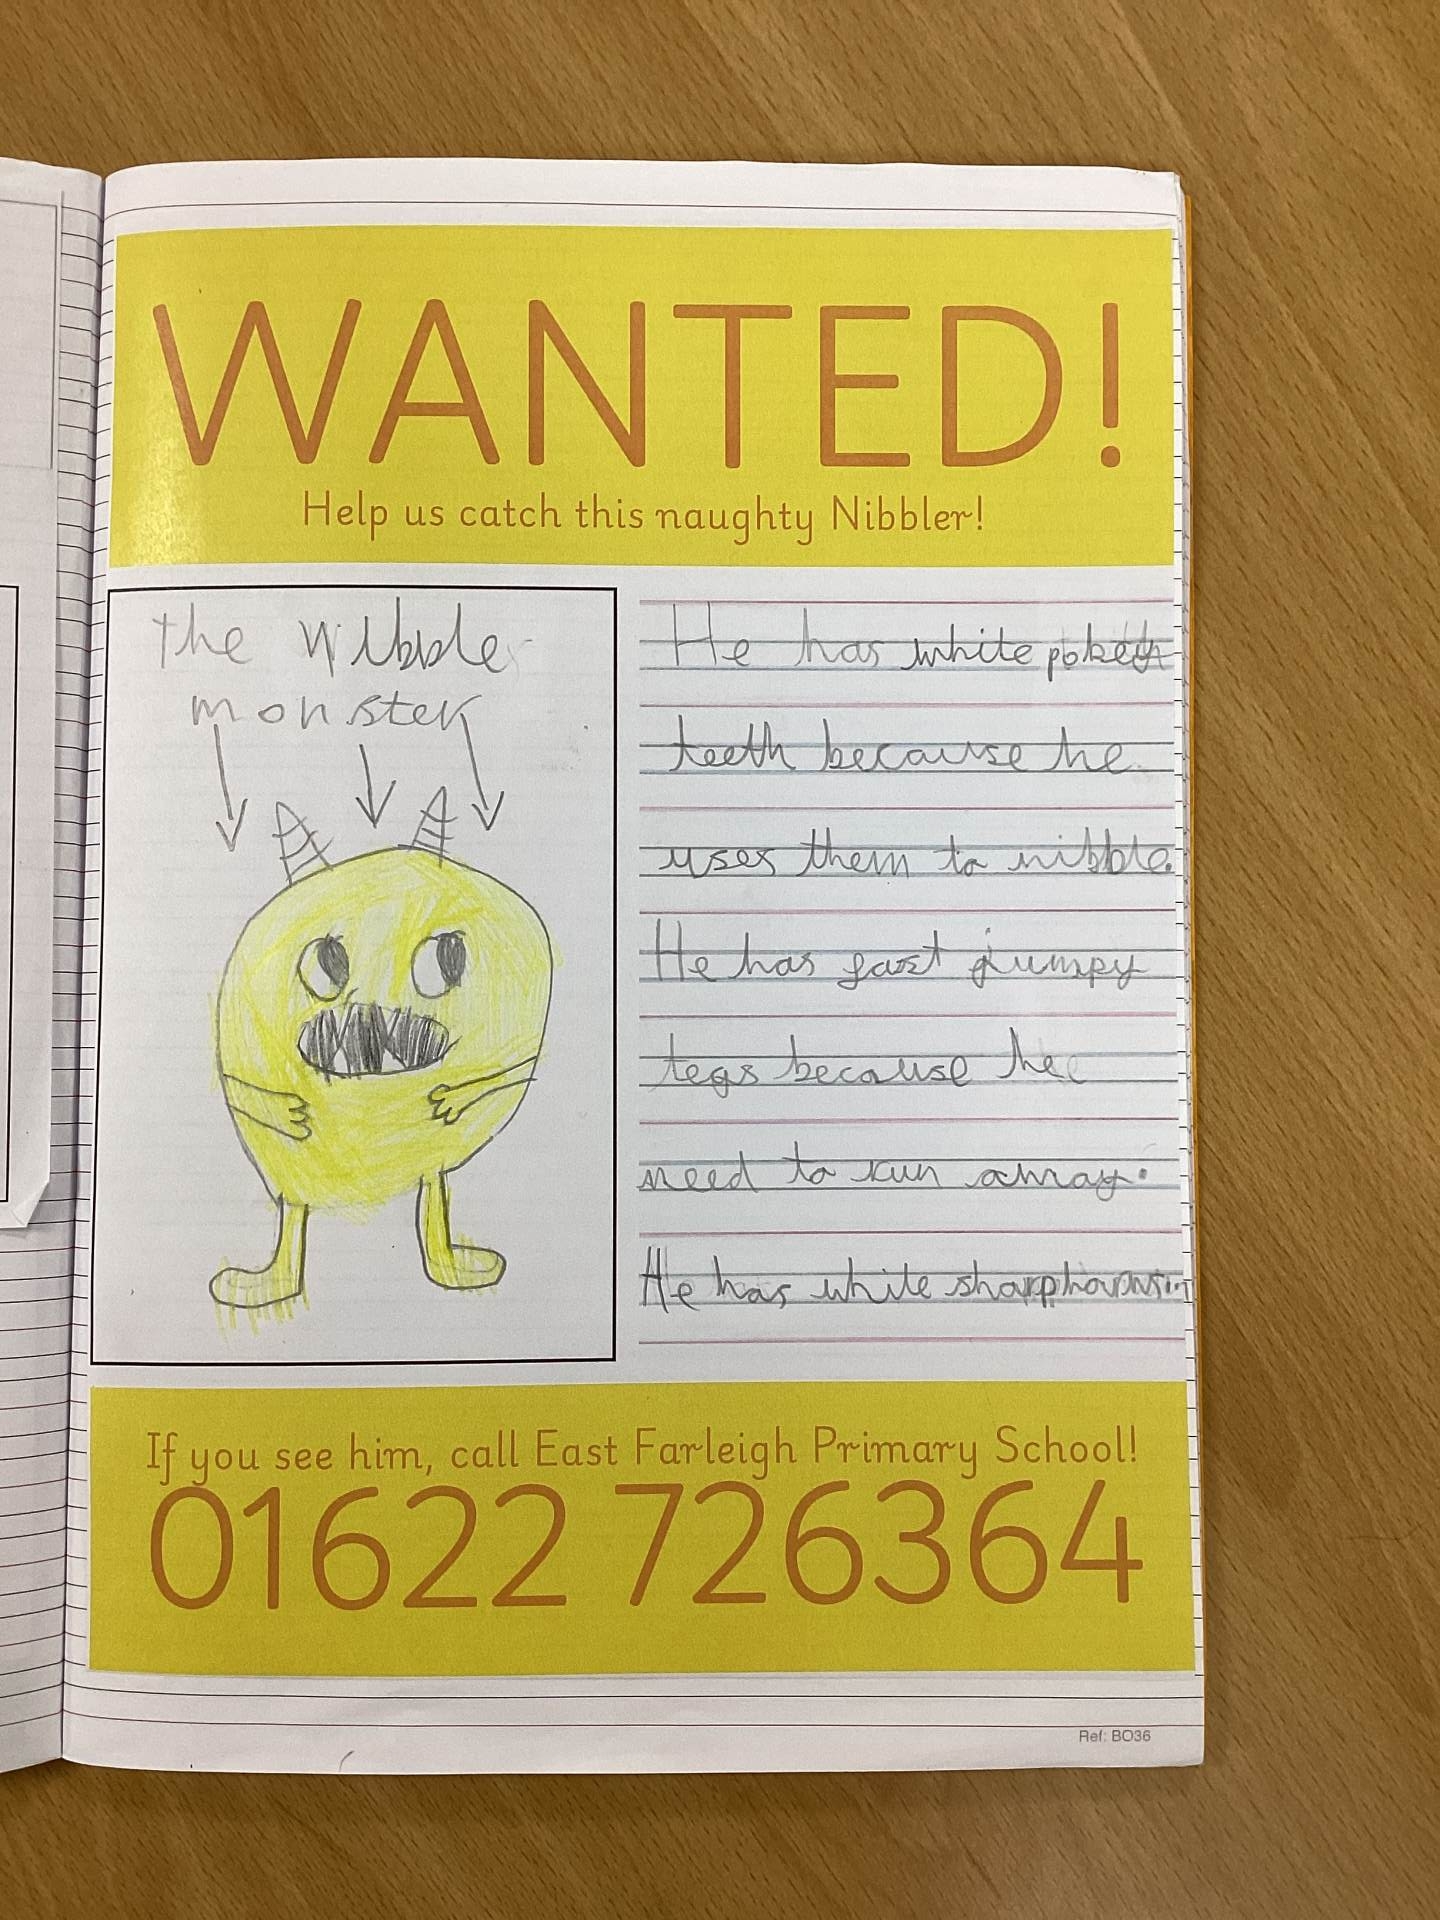 WANTED!
Help us catch this naughty Nibbler!
the Nibble
monster
He has white pokey
teeth because he
uses them to nibble.
He has fast jumpy
legs because he
need to run away.
He has white sharp
If you see him, call East Farleigh Primary School!
01622 726364
Ref: BO36